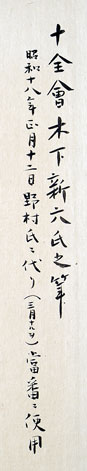 十全會木下新六氏之筆
昭和十八年正月十二日野村氏ニ代リ(三月十九日)當番ニ使用